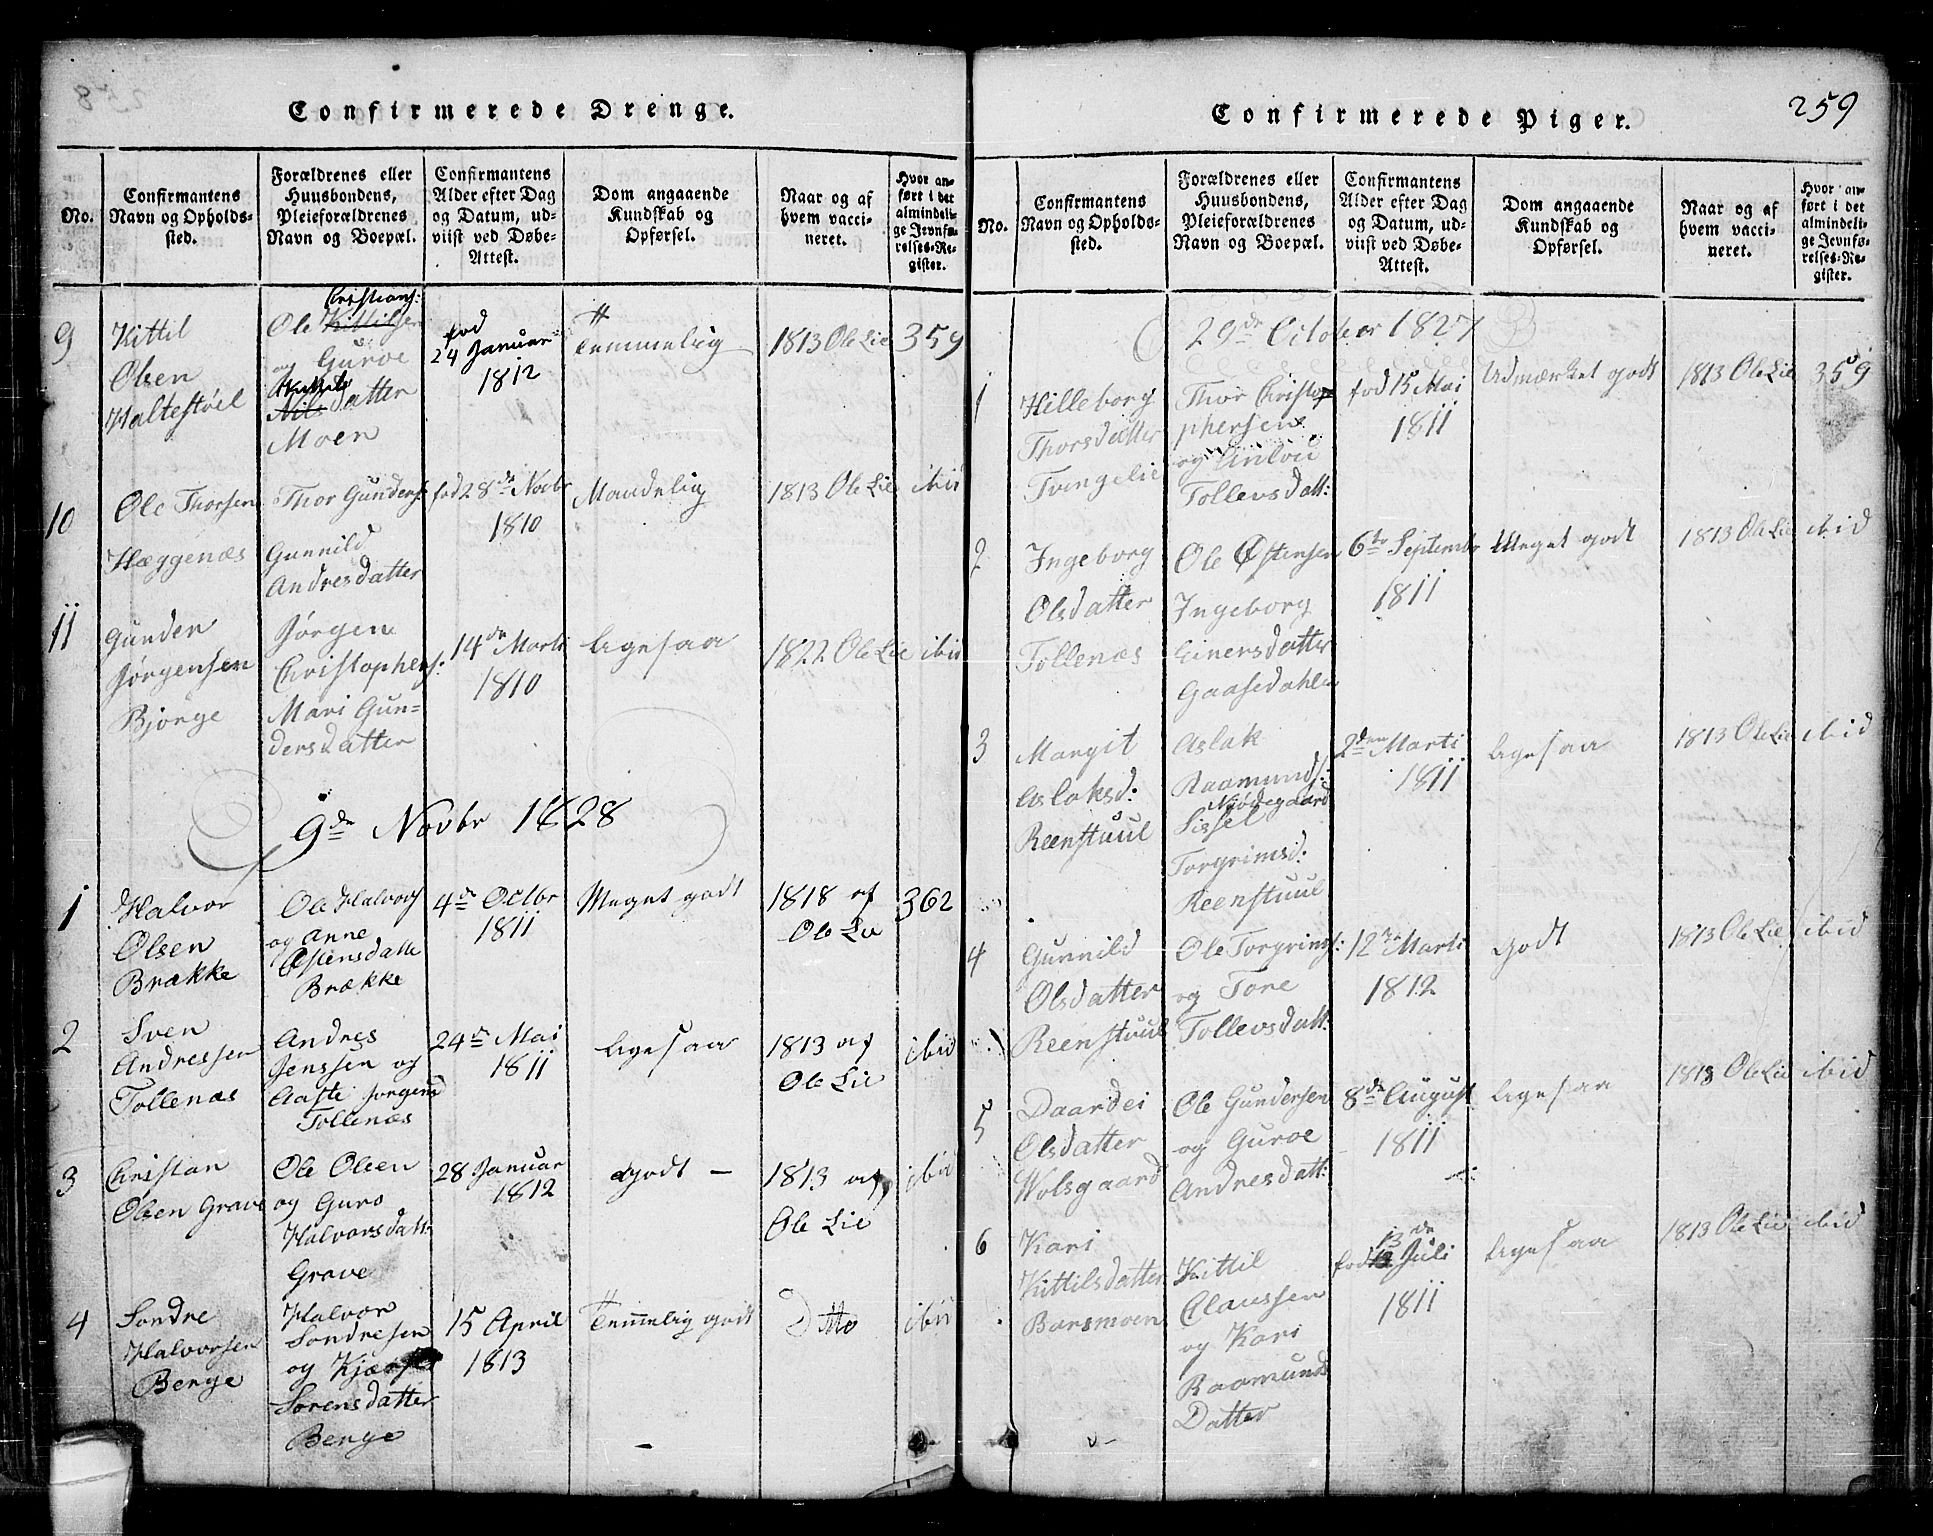 Confirmerede Drenge.
No.
Confirmantens
Navn og Opholds-
sted.
Forældrenes eller
Huusbondens,
Pleieforældrenes
Navn og Boepæl.
Confirmantens
Alder efter Dag
og Datum, ud-
viist ved Døbe-
Attest.
Dom angaaende
Kundskab og
Opførsel.
Naar og af
hvem vacci-
neret.
Hvor an-
ført i det
almindeli-
ge Jevnfø-
relses-Re-
gister.
9
Kittil
Olsen
Haltestøil
Christians:
Ole Kittilsen
og Guroe
Kittils
Nils datter
Moen
fød
24 Januar
1812
Temmelig
1813 Ole Lie
359
10
Ole Thorsen
Hæggenæs
Thor Gunders:
Gunnild
Andresdatter
fød 28de Novbr
1810
Maadelig
1813 Ole Lie
ibid
11
Gunder
Jørgensen
Bjørge
Jørgen
Christophers:
Mari Gun=
dersdatter
14de Marti
1810
ligesaa
1822 Ole Lie
ibid
9de Novbr 1828
1
Halvor
Olsen
Brække
Ole Halvors
og Anne
Østensdatte
Brække
4de Octbr
1811
Meget godt
1818 af
Ole Lie
362
2
Sven
Andressen
Tollenæs
Andres
Jenssen og
Aaste Jorgend
Tollenæs
24de Mai
1811
ligesaa
1813 af
Ole Lie
ibid
3
Christan
Olsen Grave
Ole Olsen
og Guro
Halvorsdatt:
Grave
28 Januar
1812
Godt —
1813 af
Ole Lie
ibid
4
Sondre
Halvorsen
Benge
Halvor
Sondresen
og
Sorensdatter
Benge
15 April
1813
Temmelig godt
Ditto
ibid
Confirmerede Piger.
259
No.
Confirmantens
Navn og Opholds-
sted.
Forældrenes eller
Huusbondens,
Pleieforældrenes
Navn og Boepæl.
Confirmantens
Alder efter Dag
og Datum, ud-
viist ved Døbe-
Attest.
Dom angaaende
Kundskab og
Opførsel.
Naar og af
hvem vacci-
neret.
Hvor an-
ført i det
almindeli-
ge Jevnfø-
relses-Re-
gister.
29de October 1827
1
Hilleborg
Thorsdatter
Tvengelie
Thor Christo
phersen
og Anlou
Tollevsdatt:
fød 15 Mai
1811
Udmærket godt
1813 Ole Lie
359
2
Ingeborg
Olsdatter
Tollenæs
Ole Østensen
Ingeborg
Einersdatter
Gaasedahlen
6te Septembr
1811
Meget godt
1813 Ole Lie
ibid
3
Margit
Aslaksd:
Reenstuul
Aslak
Raamunds:
Njødegaard
Sissel
Torgrimsd:
Reenstuul
2den Marti
1811
ligesaa
1813 Ole Lie
ibid
4
Gunnild
Olsdatter
Reenstuul
Ole Torgrims:
og Tone
Tollevsdatt:
12te Marti
1812
Godt
1813 Ole Lie
ibid
5
Daardei
Olsdatter
Wolsgaard
Ole Gundersen
og Guroe
Andresdatt:
8de August
1811
ligesaa
1813 Ole Lie
ibid
6
Kari
Kittilsdatter
Barsmoen
Kittil
Claussen
og Kari
Raamunds
Datter
13de
fød Juli
1811
ligesaa
1813 Ole Lie
ibid